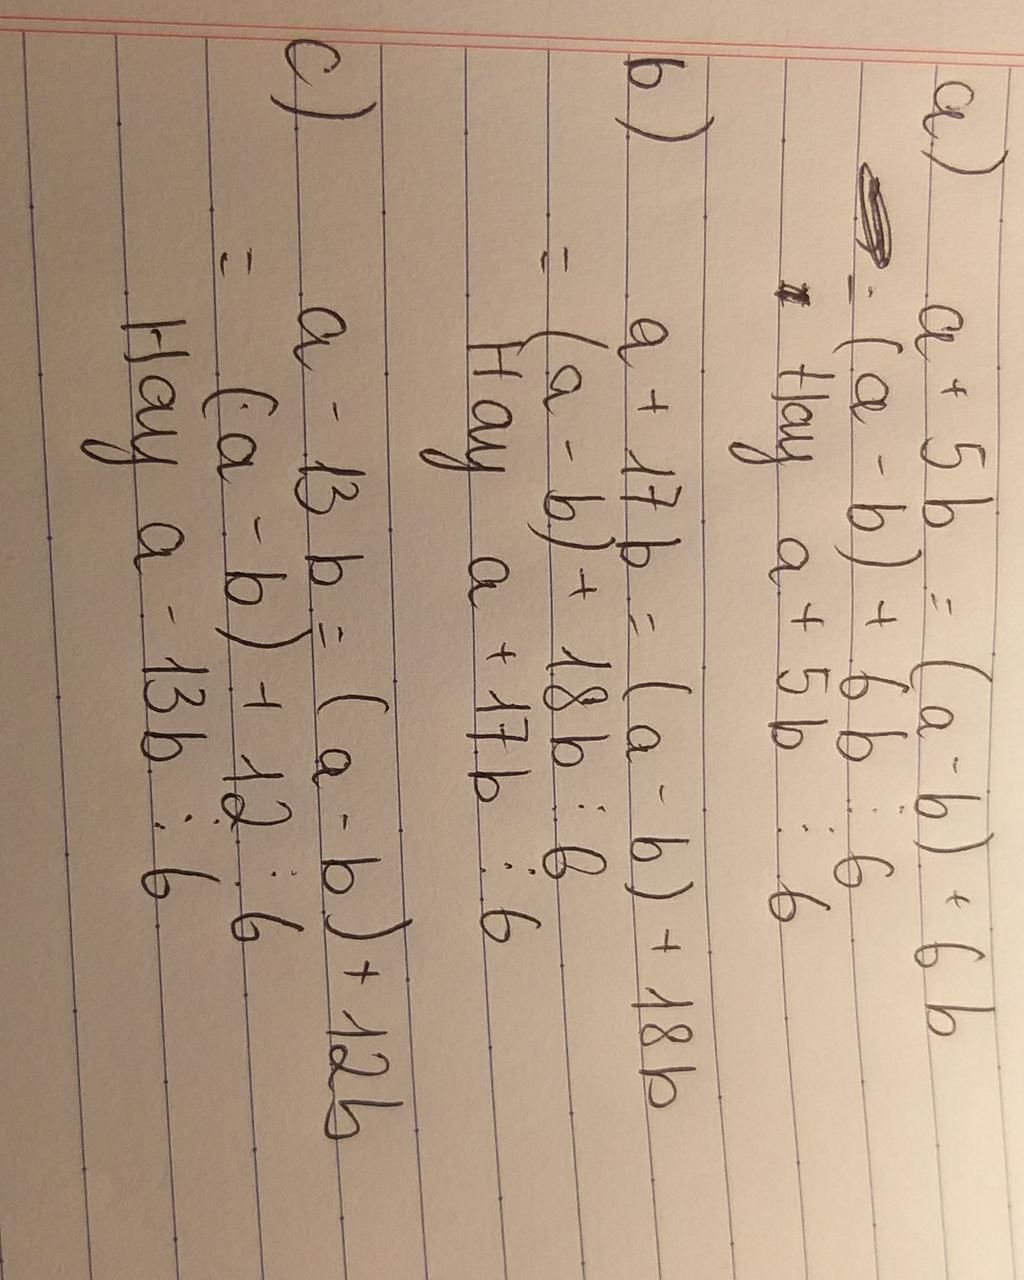 a) a + 5b = (a - b) + 6b
= (a - b) + 6b ⋮ 6
Hay a + 5b ⋮ 6
b) a + 17b = (a - b) + 18b
= (a - b) + 18b ⋮ 6
Hay a + 17b ⋮ 6
c) a - 13b = (a - b) + 12b
= (a - b) + 12 ⋮ 6
Hay a - 13b ⋮ 6